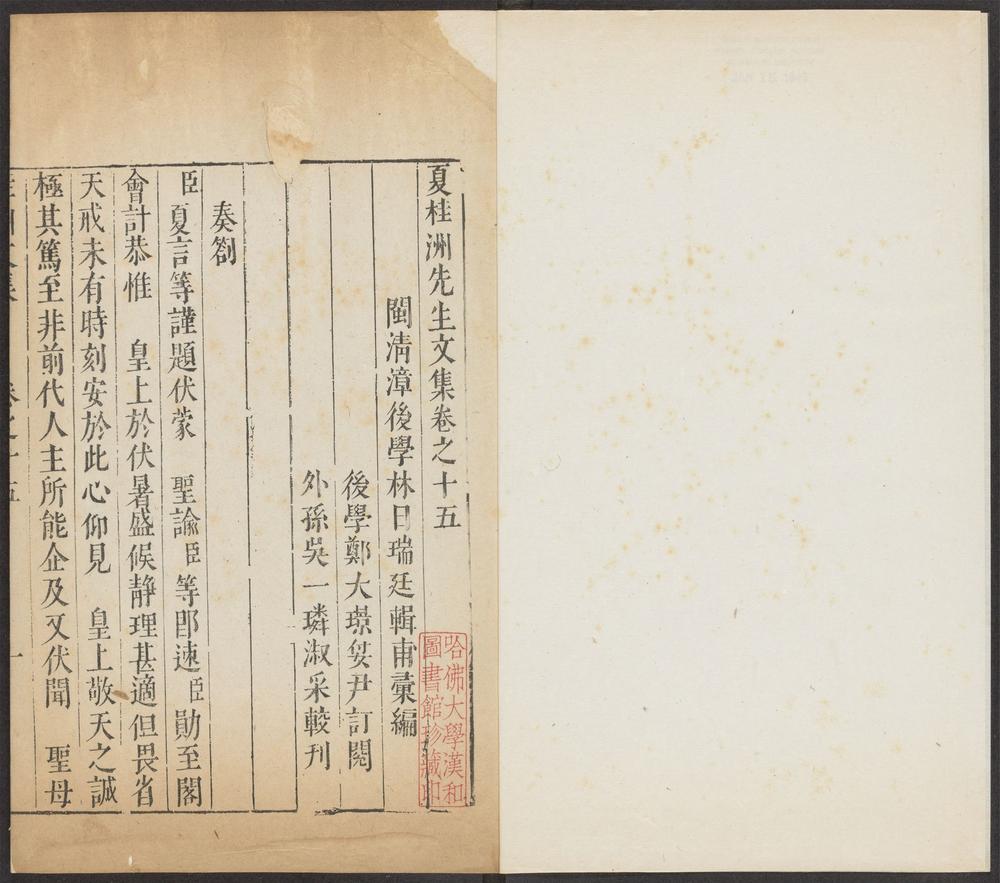 夏桂洲先生文集卷之十五
閩清漳後學林日瑞廷輯甫彚編
後學鄭大璟娑尹訂閱
外孫吳一璘淑采較刋
奏劄
臣夏言等謹題伏蒙　聖諭臣等郎速臣勛至閣
會計恭惟　皇上於伏暑盛候靜理甚適但畏省
天戒未有時刻安於此心仰見　皇上敬天之誠
極其篤至非前代人主所能企及又伏聞　聖母
卷之十五
一
哈佛大學漢和
圖書館珍藏印